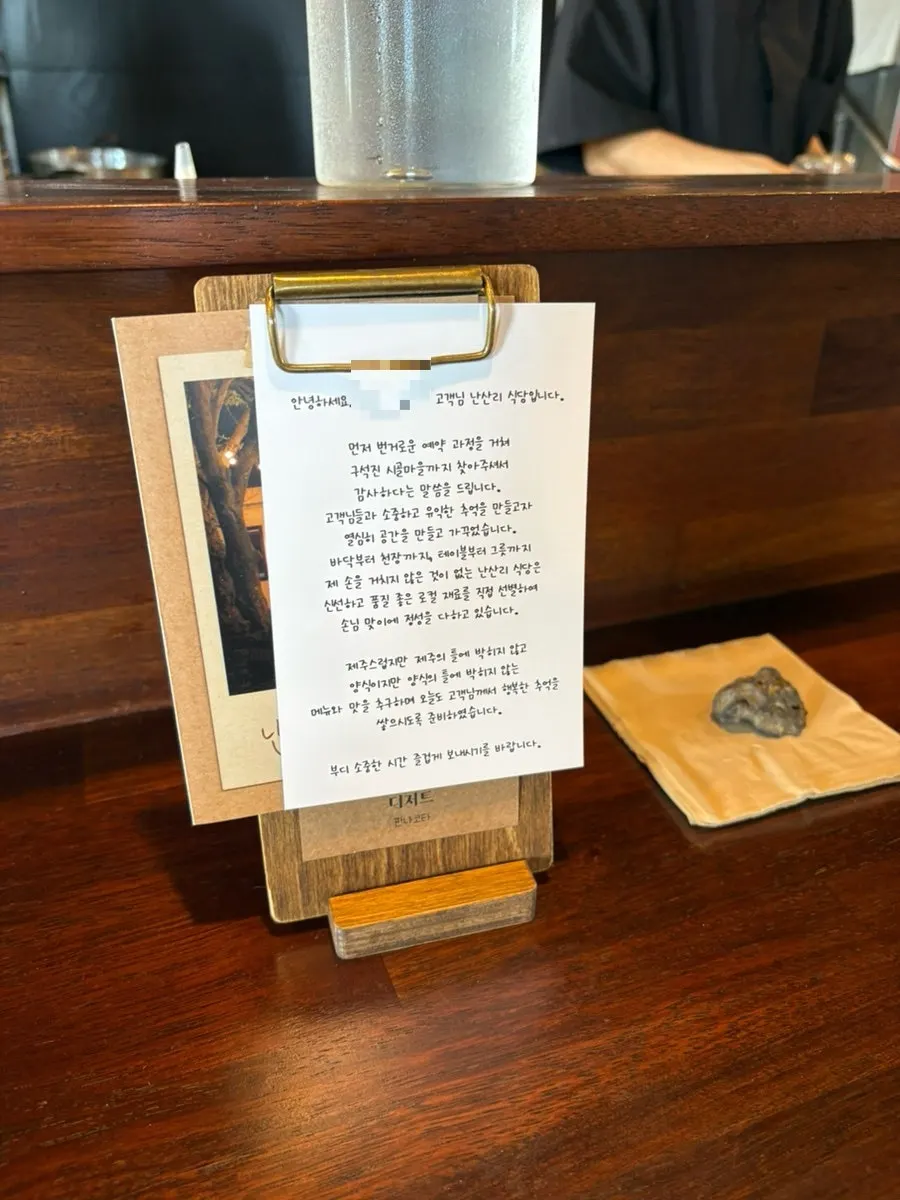 안녕하세요, 고객님 난산리 식당입니다.
먼저 번거로운 예약 과정을 거쳐
구석진 시골마을까지 찾아주셔서
감사하다는 말씀을 드립니다.
고객님들과 소중하고 유익한 추억을 만들고자
열심히 공간을 만들고 가꾸었습니다.
바닥부터 천장까지, 테이블부터 그릇까지
제 손을 거치지 않은 것이 없는 난산리 식당은
신선하고 품질 좋은 로컬 재료를 직접 선별하여
손님 맞이에 정성을 다하고 있습니다.
제주스럽지만 제주의 틀에 박히지 않고
양식이지만 양식의 틀에 박히지 않는
메뉴와 맛을 추구하며 오늘도 고객님께서 행복한 추억을
쌓으시도록 준비하였습니다.
부디 소중한 시간 즐겁게 보내시기를 바랍니다.
디저트
판나코타